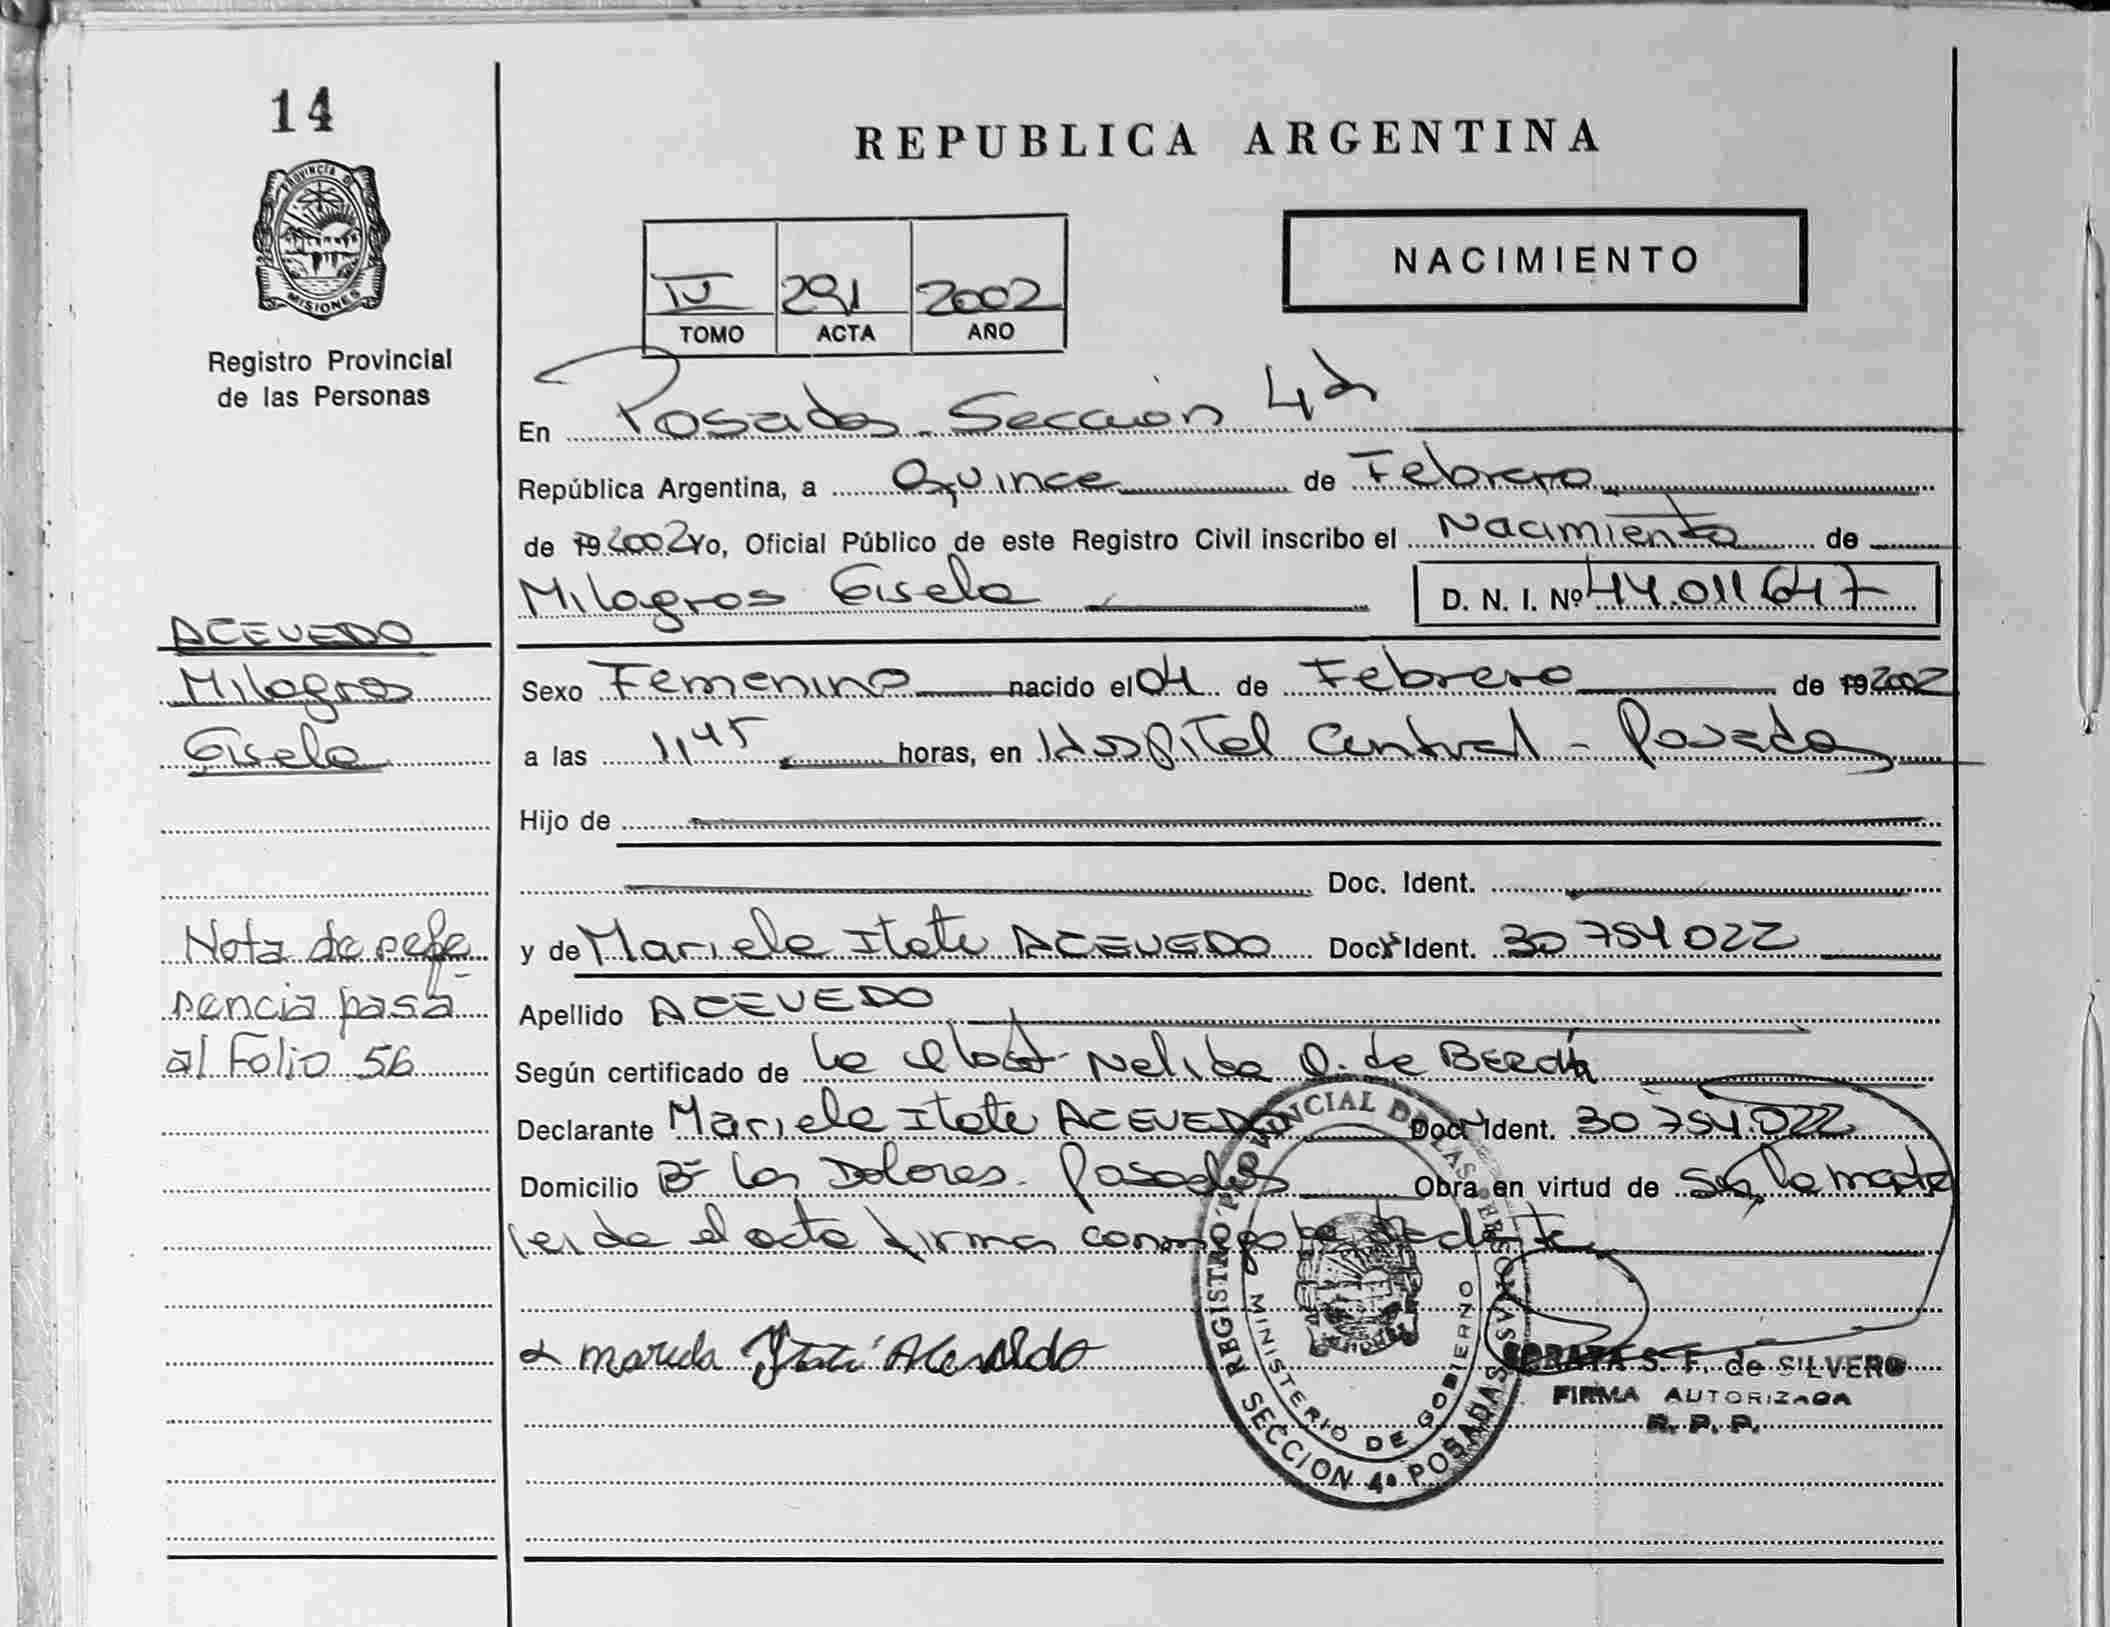 14
PROVINCIA DE
MISIONES
Registro Provincial
de las Personas
REPUBLICA ARGENTINA
NACIMIENTO
IV 291 2002
TOMO ACTA AÑO
En Posadas - Sección 4ª
República Argentina, a Quince de Febrero
de 19 2002 Yo, Oficial Público de este Registro Civil inscribo el Nacimiento de
Milagros Gisela D. N. I. Nº 44.011 647
ACEVEDO
Milagros
Gisela
Sexo Femenino nacido el 04 de Febrero de 19 2002
a las 11,45 horas, en Hospital Central - Posadas
Hijo de
Doc. Ident.
Nota de refe
rencia pasa
al Folio 56
y de Mariela Itatí ACEVEDO Doc. Ident. 30 754 022
Apellido ACEVEDO
Según certificado de La Obst. Nelida O. de
Declarante Mariela Itatí ACEVEDO Doc. Ident. 30 754.022
Domicilio Bº Los Dolores - Posadas Obra en virtud de Ser la madre
leida el acta firma conmigo la
Mariela Itatí Acevedo
REGISTRO PROVINCIAL DE LAS PERSONAS
MINISTERIO DE GOBIERNO
SECCION 4ª POSADAS
S. F. de SILVERO
FIRMA AUTORIZADA
R. P. P.